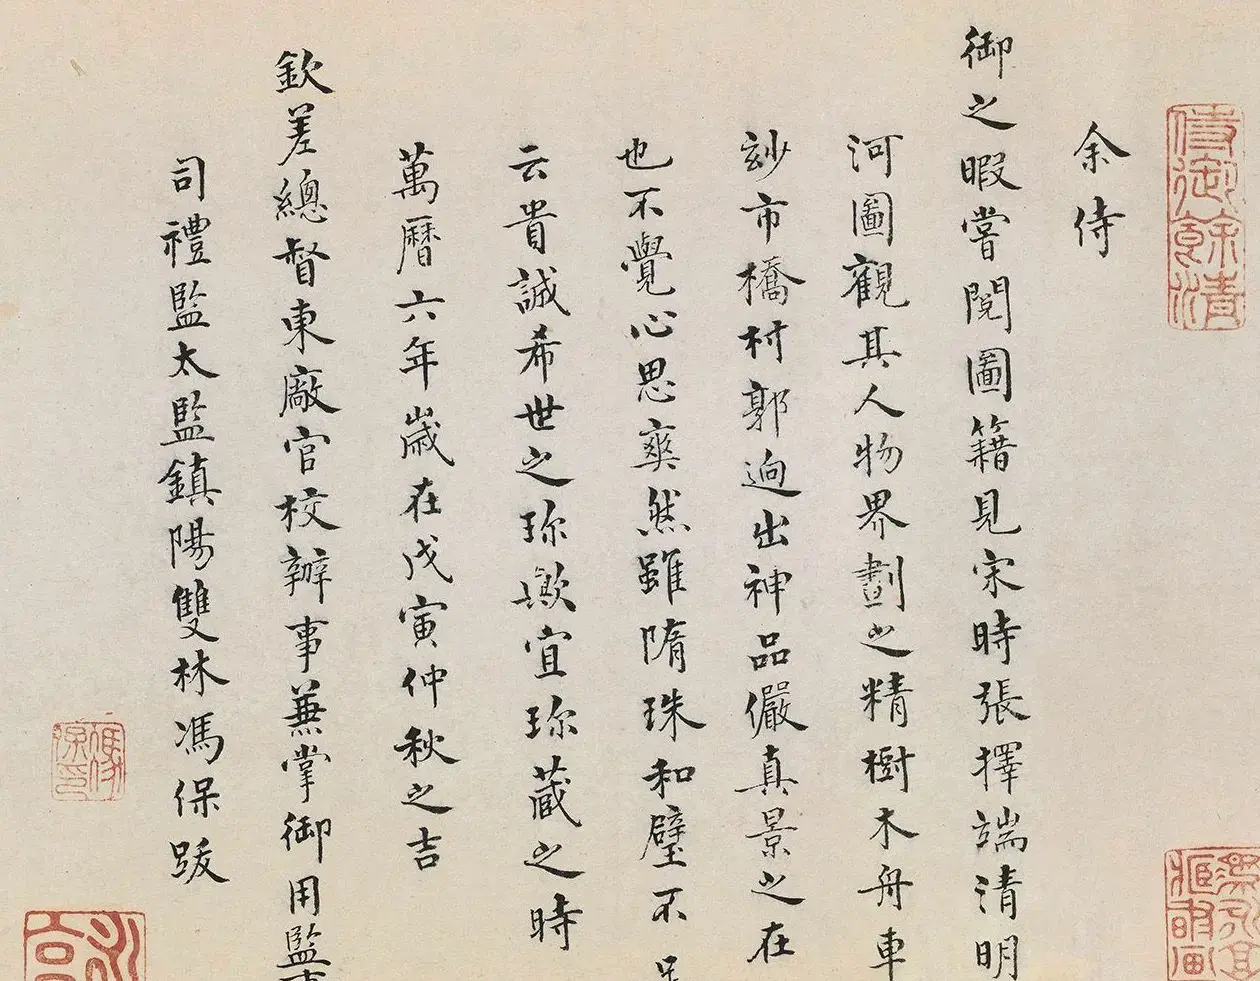 侍御餘清
余侍
御之暇嘗閱圖籍見宋時張擇端清明
河圖觀其人物界劃之精樹木舟車
玅市橋村郭迥出神品儼真景之在
也不覺心思爽然雖隋珠和璧不
云貴誠希世之珎歟宜珎藏之時
萬曆六年歲在戊寅仲秋之吉
欽差總督東廠官校辦事兼掌御用監
司禮監太監鎮陽雙林馮保跋